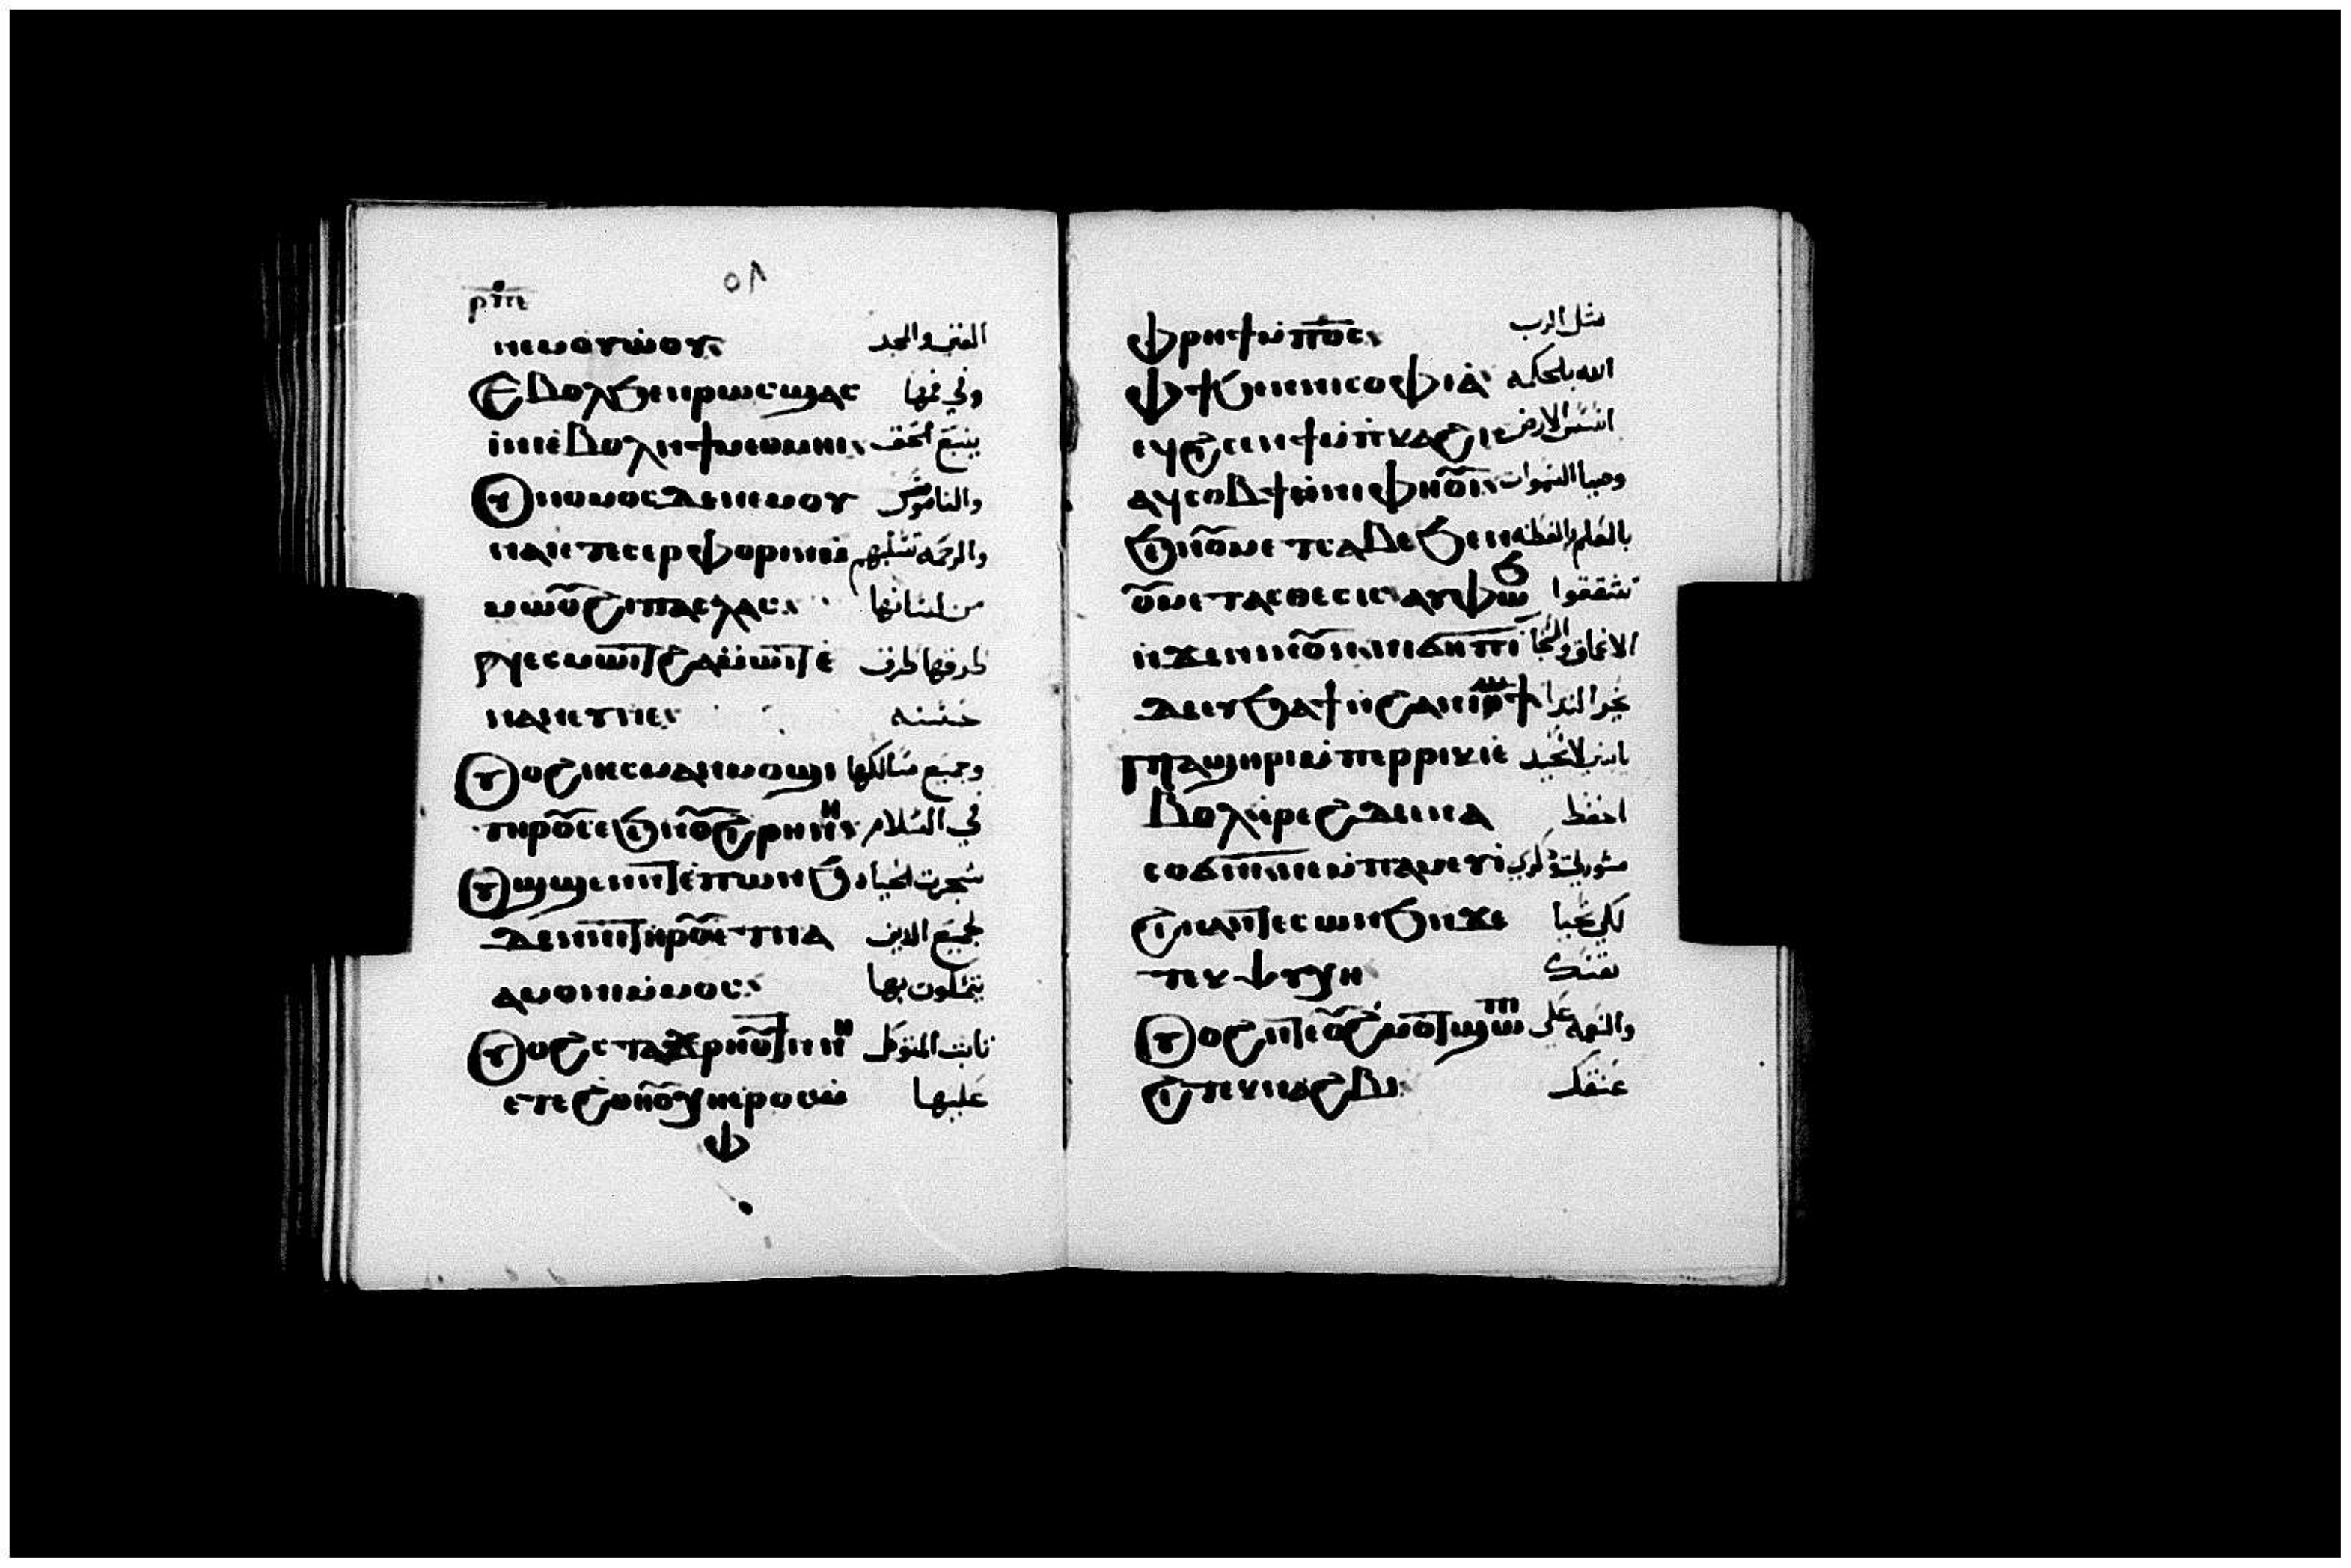 ⲣ̅ⲡ̅ⲉ̅ ٥٨
ⲛⲉⲙⲟⲩⲱⲟⲩ الغنى والمجد
Ⲉⲃⲟⲗϧⲉⲛⲣⲱⲥϣⲁⲥ وفي فمها
ⲓ̇ⲛⲓⲉ̇ⲃⲟⲗⲛϯⲙⲉⲑⲙⲏⲓ ينبع الحق
Ⲟⲩⲛⲟⲙⲟⲥⲇⲉⲛⲉⲙⲟⲩ والناموس
ⲛⲁⲓⲉⲧⲉⲥⲉⲣⲫⲟⲣⲓⲛⲙ̇ والرحمه
ⲙⲱⲟⲩϩⲓⲡⲉⲥⲗⲁⲥ من لسانها
ⲛⲉⲥⲙⲱⲓⲧϩⲁⲛⲙⲱⲓⲧⲉ̇ طرقها طرق
ⲛⲁⲛⲉⲩⲛⲉ حسنه
Ⲟⲩⲟϩⲛⲉⲥⲙⲁⲛⲙⲟϣⲓ وجميع مسالكها
ⲧⲏⲣⲟⲩⲥⲉϧⲉⲛⲟⲩϩⲓⲣⲏⲛⲏ في السلام
Ⲟⲩϣϣⲏⲛⲛⲧⲉⲡⲱⲛϧ شجرت الحياه
ⲇⲉⲛⲛⲓⲧⲏⲣⲟⲩⲉⲧⲛⲁ لجميع الذين
ⲁⲙⲟⲛⲓⲙ̇ⲙⲟⲥ يتمسكون بها
Ⲟⲩⲟϩⲥⲧⲁϫⲣⲏⲟⲩⲧⲛⲛⲏ ثابت المتوكل
ⲉⲧⲉϩⲑⲏⲟⲩⲭⲏⲉⲣⲟⲥⲙ̇ عليها
ⲫ
ⲙ̇ⲫⲣⲏϯⲙ̇ⲡⲟ̅ⲥ̅ مثل الرب
Ⲫϯϧⲉⲛⲛⲓⲥⲟⲫⲓⲁ̇ الله بالحكمه
ⲉϥϩⲓⲥⲉⲛϯⲙ̇ⲡⲕⲁϩⲓ اسس الارض
ⲁϥⲥⲟⲃϯⲛ̇ⲛⲓⲫⲏⲟⲩⲓ̇ وهيا السموات
ϧⲉⲛⲟⲩⲙⲉⲧⲥⲁⲃⲉϧⲉⲛ بالعلم والفطنه
ⲟⲩⲙⲉⲧⲁⲥⲑⲉⲥⲓⲥⲁⲩⲫⲱϧ تشققوا
ⲛ̇ϫⲉⲛⲓⲛⲟⲩⲛⲛⲓϭⲏⲡⲓ الاعماق والسحاب
ⲇⲉⲩϧⲁϯⲛ̇ϩⲁⲛⲓⲱϯ الندا
Ⲡⲁϣⲏⲣⲓⲙ̇ⲡⲉⲣⲣⲓⲕⲓⲉ̇ يابني لا تحيد
ⲃⲟⲗⲁ̇ⲣⲉϩⲇⲉⲛⲁ احفظ
ⲥⲟϭⲛⲓⲛⲉⲙⲡⲁⲙⲉⲩⲓ̇ مشورتي
ϩⲓⲛⲁⲛⲧⲉⲥⲱⲛϧⲛϫⲉ لكي تحيا
ⲧⲉⲕⲯⲩⲭⲏ نفسك
Ⲟⲩⲟϩⲛⲧⲉⲟⲩϩⲙⲟⲧϣⲱⲡ والنعمه على
ϩⲓⲧⲉⲕⲛⲁϩⲃⲓ عنقك